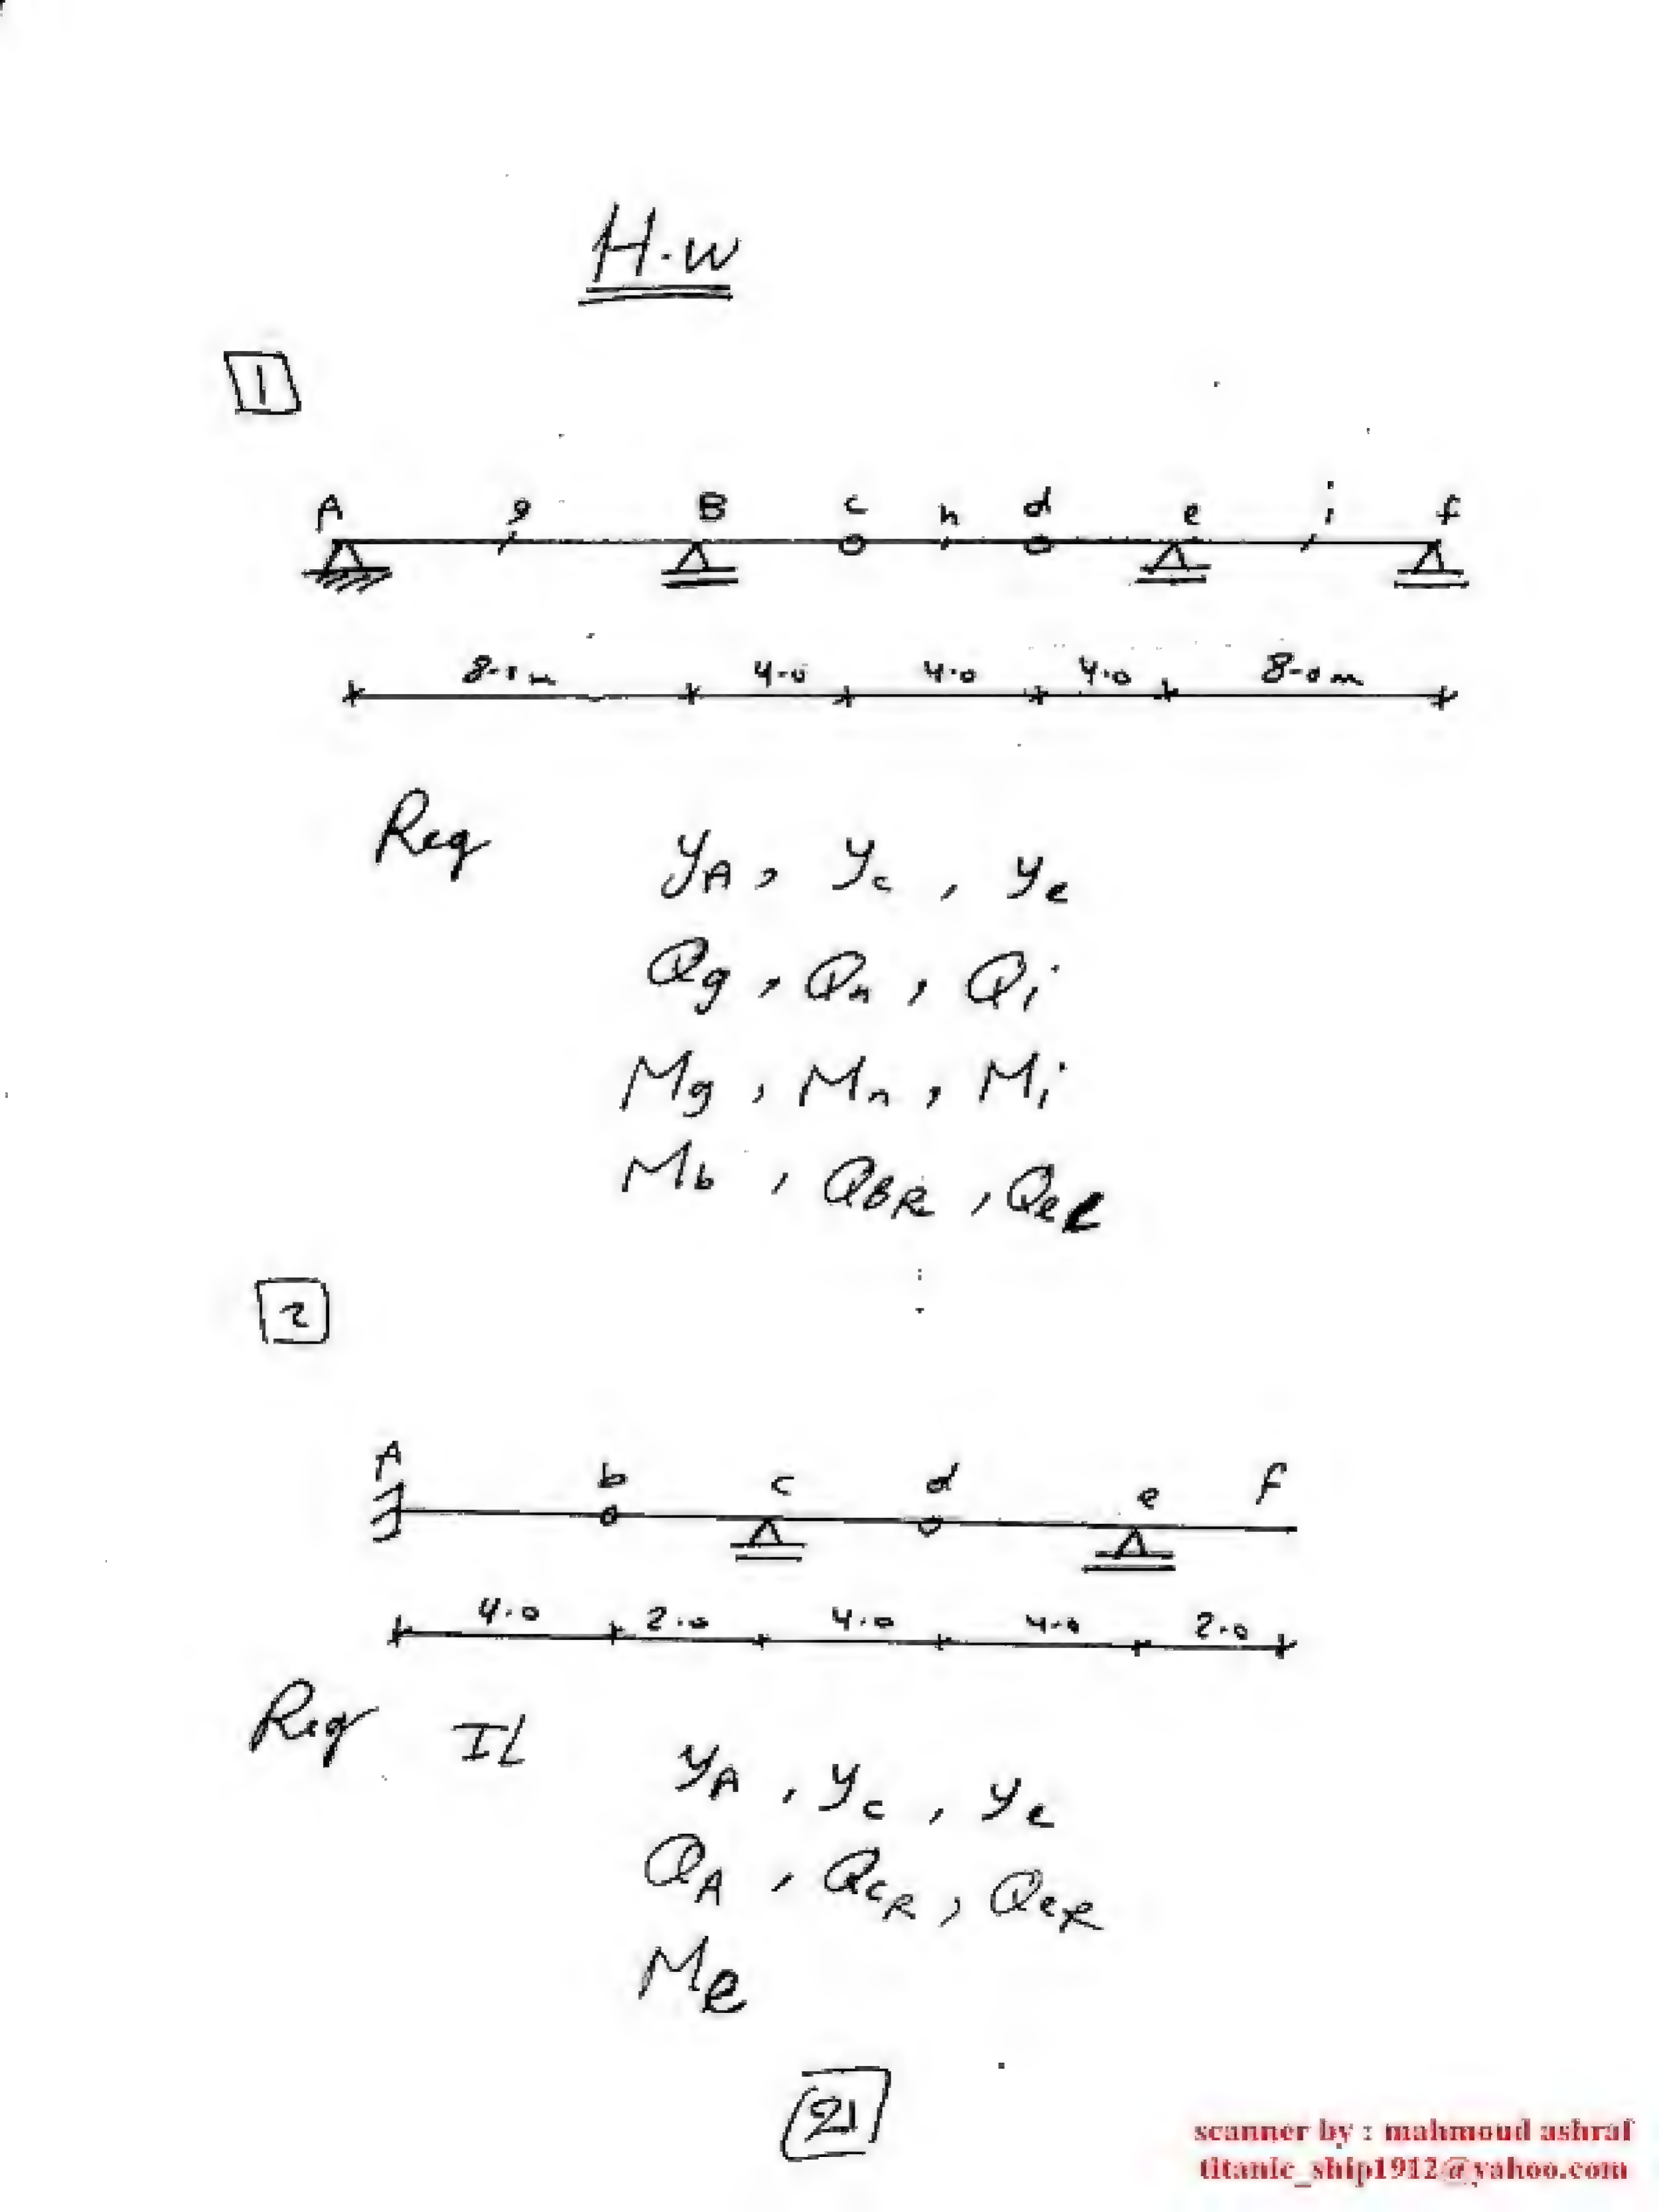 H.w
1
A g B c n d e i f
8.0m 4.0 4.0 4.0 8.0m
Req yA , yc , ye
Qg , Qn , Qi
Mg , Mn , Mi
Mb , QBR , Qel
2
A b c d e f
4.0 2.0 4.0 4.0 2.0
Req IL yA , yc , ye
QA , QcR , QeR
Me
21
scanner by : mahmoud ashraf
titanic_ship1912@yahoo.com